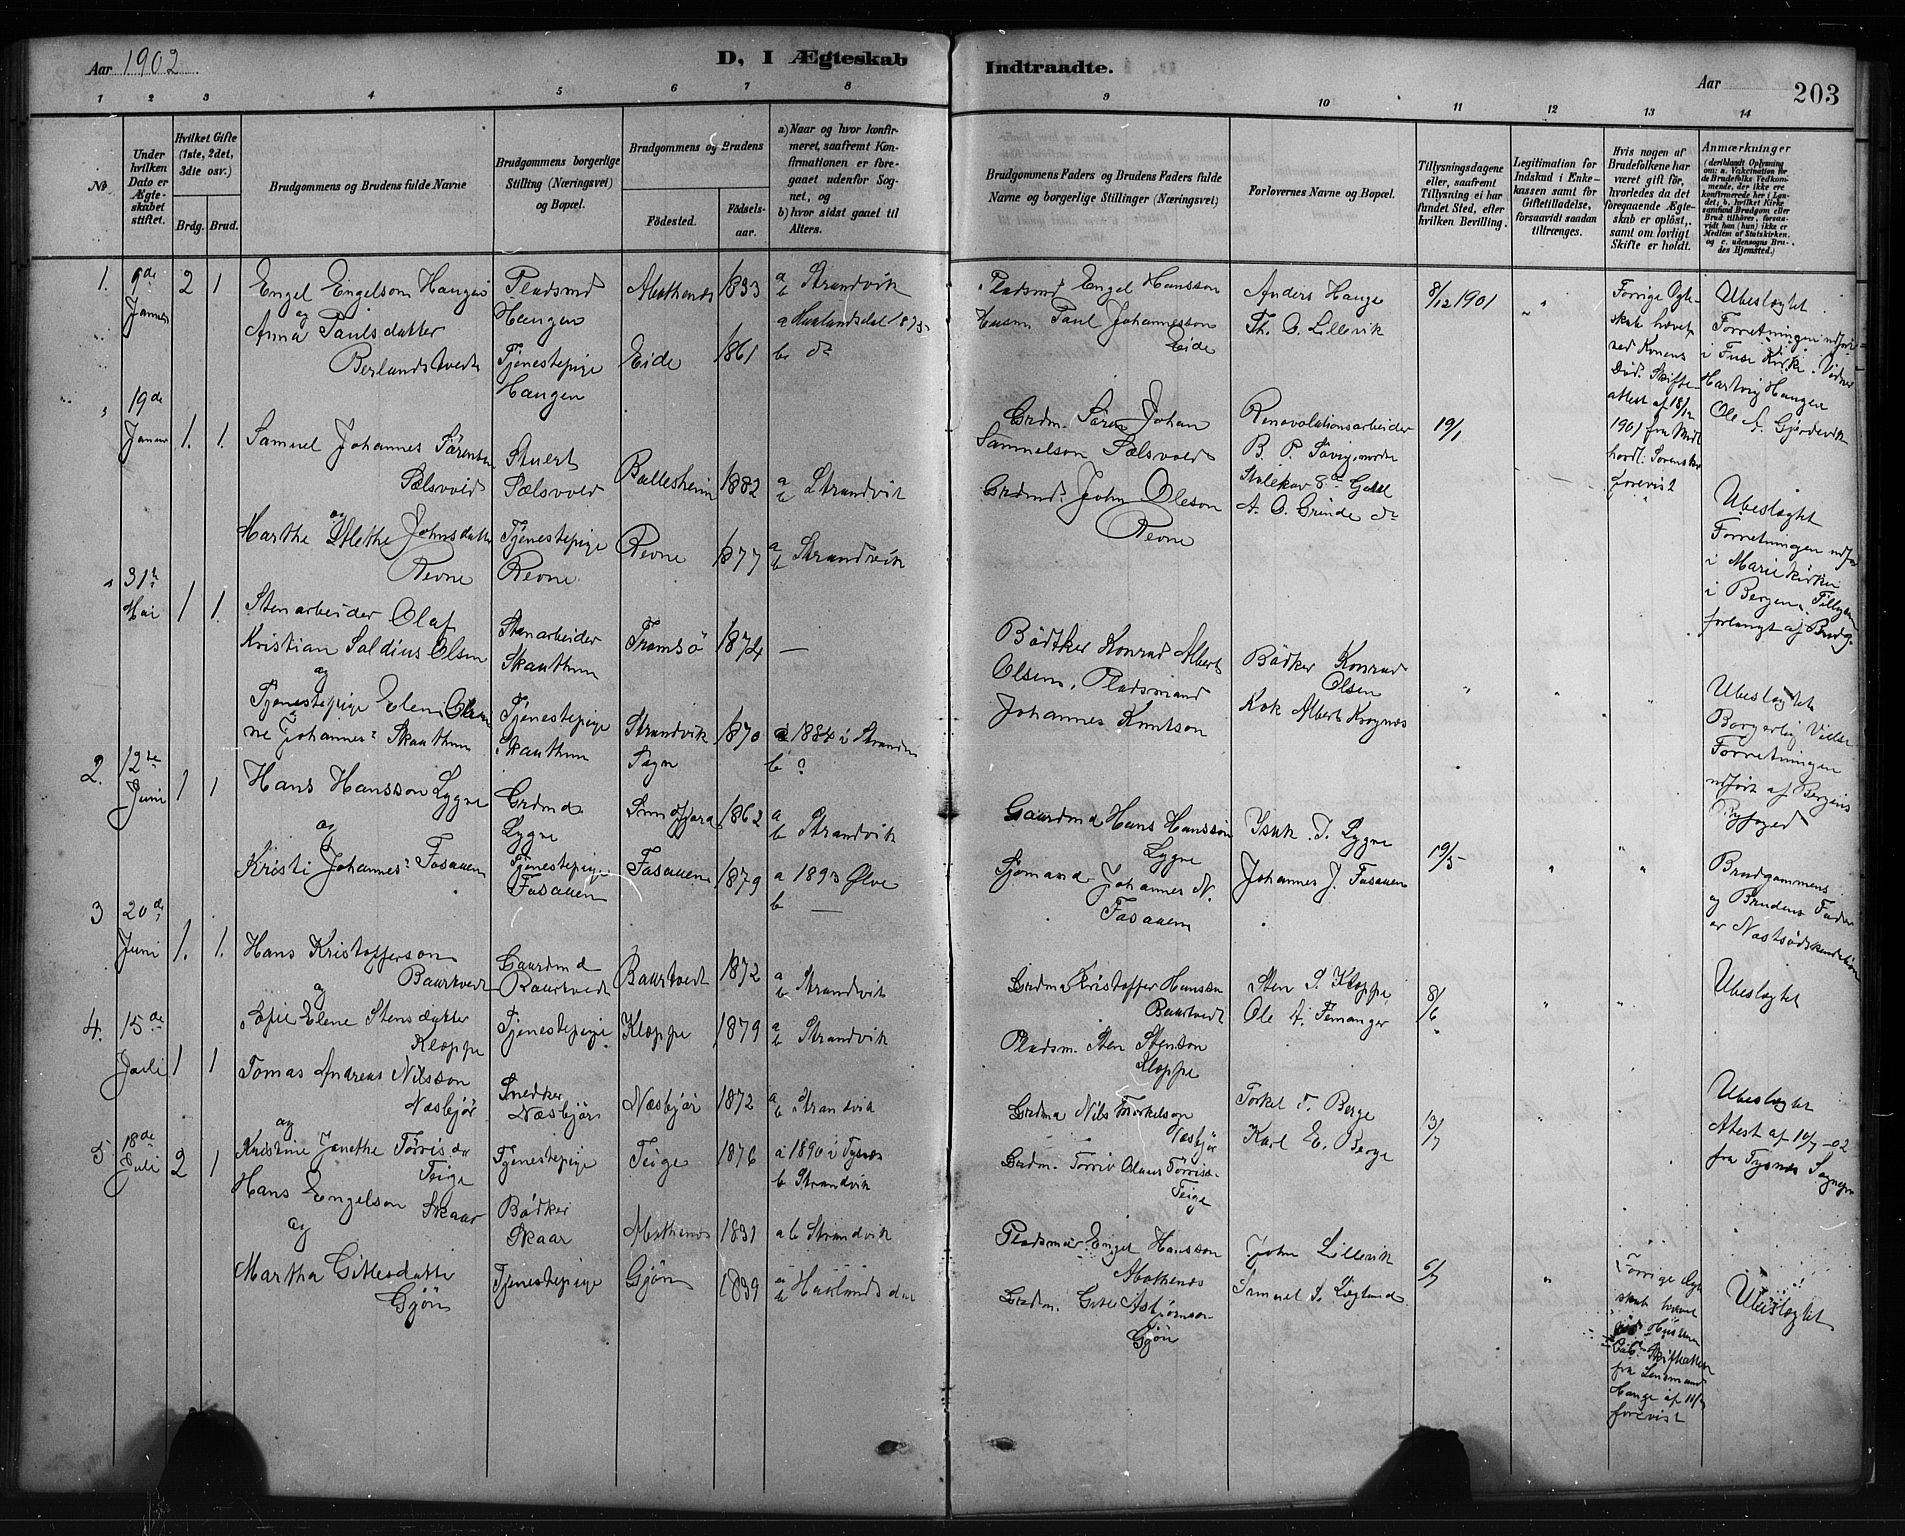 Aar 1902
D, I Ægteskab
Indtraadte.
Aar
203
1 2 3 4 5 6 7 8
9 10 11 12 13 14
No.
Under hvilken Dato er Ægteskabet stiftet.
Hvilket Gifte (1ste, 2det, 3die osv.)
Brdg. Brud.
Brudgommens og Brudens fulde Navne
Brudgommens borgerlige Stilling (Næringsvei) og Bopæl.
Brudgommens og Brudens
Fødested.
Fødselsaar.
a) Naar og hvor konfirmeret, saafremt Konfirmationen er foregaaet udenfor Sognet, og
b) hvor sidst gaaet til Alters.
Brudgommens Faders og Brudens Faders fulde Navne og borgerlige Stillinger (Næringsvei)
Forlovernes Navne og Bopæl.
Tillysningsdagene eller, saafremt Tillysning ei har fundet Sted, efter hvilken Bevilling.
Legitimation for Indskud i Enkekassen samt for Giftetilladelse, forsaavidt saadan tiltrænges.
Hvis nogen af Brudefolkene har været gift før, hvorledes da det foregaaende Ægteskab er opløst, samt om lovligt Skifte er holdt.
Anmærkninger
(deriblandt Oplysning om: a. Vakcination for de Brudefolks Vedkommende, der ikke ere konfirmerede her i Landet; b. hvilket Kirkesamfund Brudgom eller Brud tilhører, forsaavidt han (hun) ikke er Medlem af Statskirken, og c. udensogns Brudes Hjemsted.)
1. 9de Januar 2 1
Engel Engelson Haugen
og
Anna Paulsdatter
Berlandstvedt
Pladsmd
Haugen
Tjenestepige
Haugen
1833
Eide 1861
a b Strandvik
a Haalandsdal 1875
b do
Pladsmd Engel Hansson
Husm. Paul Johannesson
Eide
Anders Hauge
Th. O. Lillevik
8/12 1901
Forrige Ægteskab hævet ved Konens Død. Skifteattest af 18/12 1901 fra Midthordl. Sorenskr. forevist
Ubeslægtet
Forretningen udført i Fuse Kirke. Vidner Hartvig Haugen
Ole A. Gjerdevik
19de Januar 1. 1.
Samuel Johannes Sörensen
Sælsvold
og
Marthe Malethe Johnsdatter
Revne
Stuert
Sælsvold
Tjenestepige
Revne
Ballesheim 1882
Revne 1877
a b Strandvik
a b Strandvik
Grdm. Sören Johan
Samuelson Sælsvold
Grdmd. John Oleson
Revne
Renovationsarbeider
B. P. Sævig
A. O. Grinde do
19/1
Ubeslægtet
Forretningen udført i Mariekirken i Bergen. Tillysn. forlangt af Brudg.
31te Mai 1 1.
Stenarbeider Olaf
Kristian Saldius Olsen
og
Tjenestepige
Johannes: Skauthun
Stenarbeider
Skauthun
Tjenestepige
Skauthun
Tromsö 1874 —
Strandvik 1870
Sogn
a 1884 i Strandvik
b ?
Bödtker Konrad Albert
Olsen, Pladsmand
Johannes Knutson
Bödker Konrad
Olsen
Kok Albert Krognæs
Ubeslægtet
Borgerlig Vielse
Forretningen udført af Bergens Byfoged
2. 12te Juni 1 1
Hans Hansson Lygre
og
Kristi Johannes: Fusauem
Grdmd
Lygre
Tjenestepige
Fusauem
Sundfjord 1862
Fusauem 1879
a b Strandvik
a 1893 Ølve
b —
Gaardmd Hans Hansson
Lygre
Sjömand Johannes N.
Fusauem
Isak J. Lygre
Johannes J. Fusauem
19/5
Brudgommens og Brudens Fader er Næstsødskendebörn
3 20de Juni 1. 1.
Hans Kristofferson
Baurtvedt
og
Sofie Elene Stensdatter
Kloppe
Gaardmd
Baurtvedt
Tjenestepige
Baurtvedt 1872
Kloppe 1879
a b Strandvik
a b Strandvik
Grdmd Kristoffer Hansson
Baurtvedt
Pladsm. Sten Stenson
Kloppe
Sten S. Kloppe
Ole A. Femanger
8/6
Ubeslægtet
4. 15de Juli 1 1
Tomas Andreas Nilsson
Næsbjör
og
Kristine Janethe Törris dr
Teige
Snedker
Næsbjör
Tjenestepige
Næsbjör 1872
Teige 1876
a b Strandvik
a 1890 i Tysnes
b Strandvik
Grdmd Nils Torkelson
Næsbjör
Grdm. Torris Olaus Törriss.
Teige
Torkel T. Berge
Karl E. Berge
13/7
Ubeslægtet
Attest af 10/7 -02
fra Tysnes Sognepr.
5 18de Juli 2 1
Hans Engelson Skaar
og
Martha Gittlesdatter
Gjön
Bödker
Skaar
Tjenestepige
1831
Gjön 1839
a b Strandvik
a b Haalandsdal
Pladsmd Engel Hansson
Grdm. Gitle Asbjörnson
Gjön
John Lillevik
Samuel S. Lægland
6/7
Forrige Ægteskab hævet ved Hustruens Död. Skifteattest fra Lensmand Hauge af 11/7 forevist
Ubeslægtet